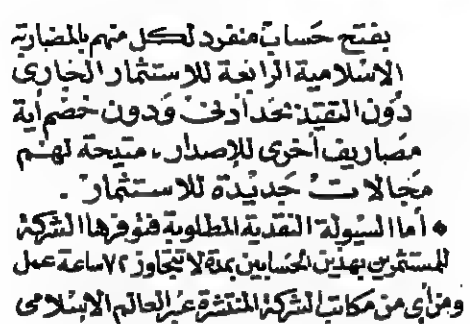 بفتح حساب منفرد لكل منهم بالمضاربة
الاسلامية الرابعة للاستثمار الجارى
دون التقيد بحد أدنى ودون خصم أية
مصاريف أخرى للإصدار، متيحة لهم
مجالات جديدة للاستثمار.
• أما السيولة النقدية المطلوبة فتوفرها الشركة
للمستثمرين بهذين الحسابين بمدة لا تتجاوز ٧٢ ساعة عمل
ومن أى من مكاتب الشركة المنتشرة عبر العالم الاسلامى